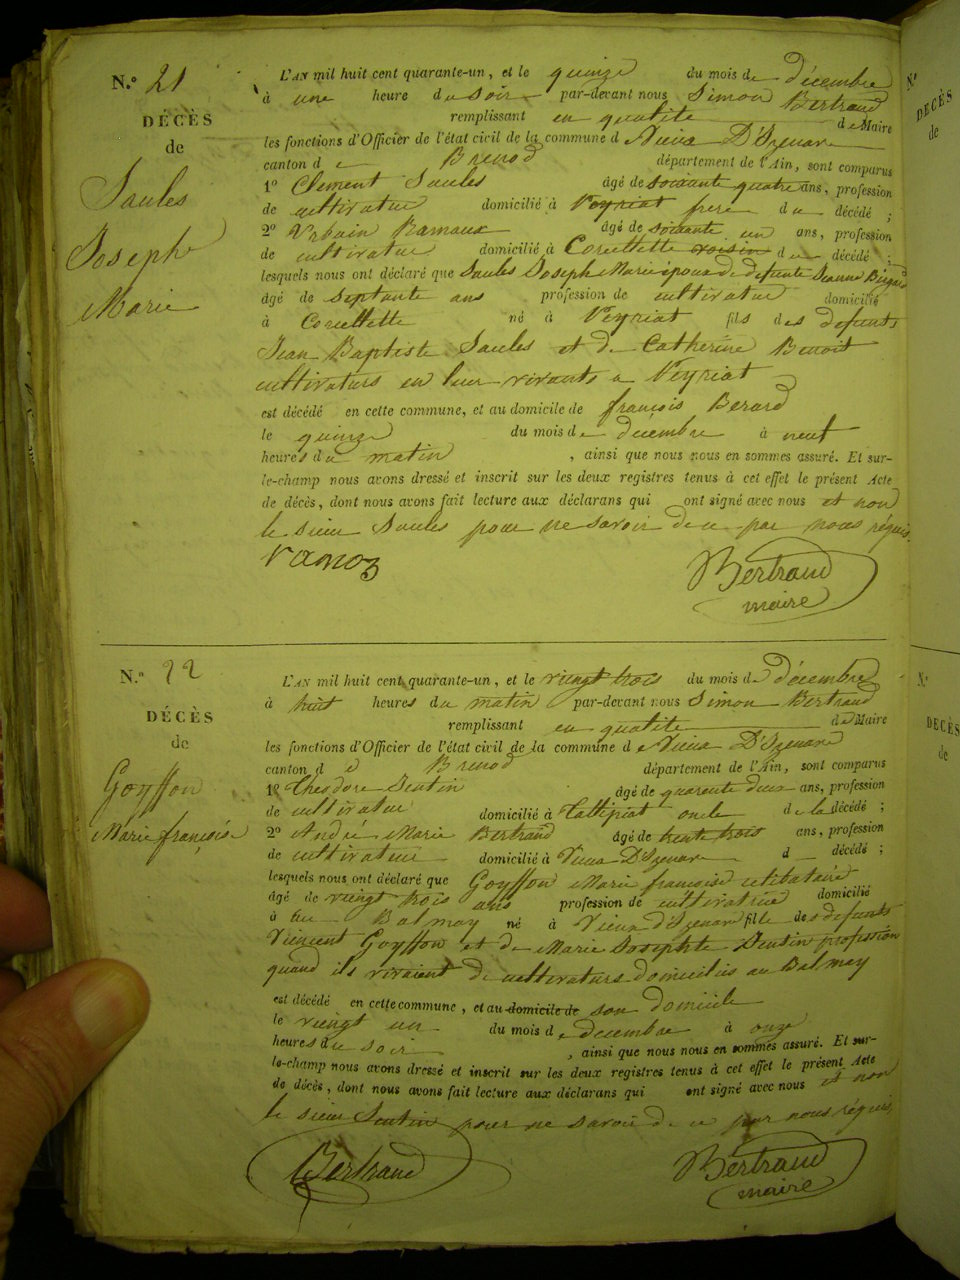 N.º 21
DÉCÈS
de
Saules
Joseph
Marie
L'AN mil huit cent quarante-un, et le quinze du mois de décembre
à une heure du soir par-devant nous Simon Bertrand
remplissant en qualité de Maire
les fonctions d'Officier de l'état civil de la commune d e Vieux D'Izenave
canton d e Brenod département de l'Ain, sont comparus
1º Clement Saules âgé de soixante quatre ans, profession
de cultivateur domicilié à Veyriat frere du décédé ;
2º Urbain Ramaux âgé de soixante un ans, profession
de cultivateur domicilié à Corcellette voisin du décédé ;
lesquels nous ont déclaré que Saules Joseph Marie époux de defunte Jeanne
âgé de septante ans profession de cultivateur domicilié
à Corcellette né à Veyriat fils des defunts
Jean Baptiste Saules et de Catherine Benoit
cultivateurs en leur vivants a Veyriat
est décédé en cette commune, et au domicile de françois Berard
le quinze du mois de décembre à neuf
heures du matin , ainsi que nous nous en sommes assuré. Et sur-
le-champ nous avons dressé et inscrit sur les deux registres tenus à cet effet le présent Acte
de décès, dont nous avons fait lecture aux déclarans qui ont signé avec nous et non
le sieur Saules pour ne savoir de ce par nous réquis.
Bertrand
maire
N.º 22
DÉCÈS
de
Goyffon
Marie françoise
L'AN mil huit cent quarante-un, et le vingt trois du mois de décembre
à huit heures du matin par-devant nous Simon Bertrand
remplissant en qualité de Maire
les fonctions d'Officier de l'état civil de la commune d e Vieux D'Izenave
canton d e Brenod département de l'Ain, sont comparus
1º Theodore Sentin âgé de quarente deux ans, profession
de cultivateur domicilié à Tallipiat oncle de la décédé ;
2º André Marie Bertrand âgé de trente trois ans, profession
de cultivateur domicilié à Vieux D'Izenave d décédé ;
lesquels nous ont déclaré que Goyffon Marie françoise célibataire
âgé de vingt trois ans profession de cultivatrice domicilié
à au Balmay né à Vieux d'Izenave fille des defunts
Vincent Goyffon et de Marie Josephte Sentin profession
quand ils vivaient de cultivateurs domiciliés au Balmay
est décédé en cette commune, et au domicile de son domicile
le vingt un du mois d e décembre à onze
heures du soir , ainsi que nous nous en sommes assuré. Et sur-
le-champ nous avons dressé et inscrit sur les deux registres tenus à cet effet le présent Acte
de décès, dont nous avons fait lecture aux déclarans qui ont signé avec nous et non
le sieur Sentin pour ne savoir de ce par nous réquis
Bertrand
Bertrand
maire
N.º
DÉCÈS
de
N.º
DÉCÈS
de